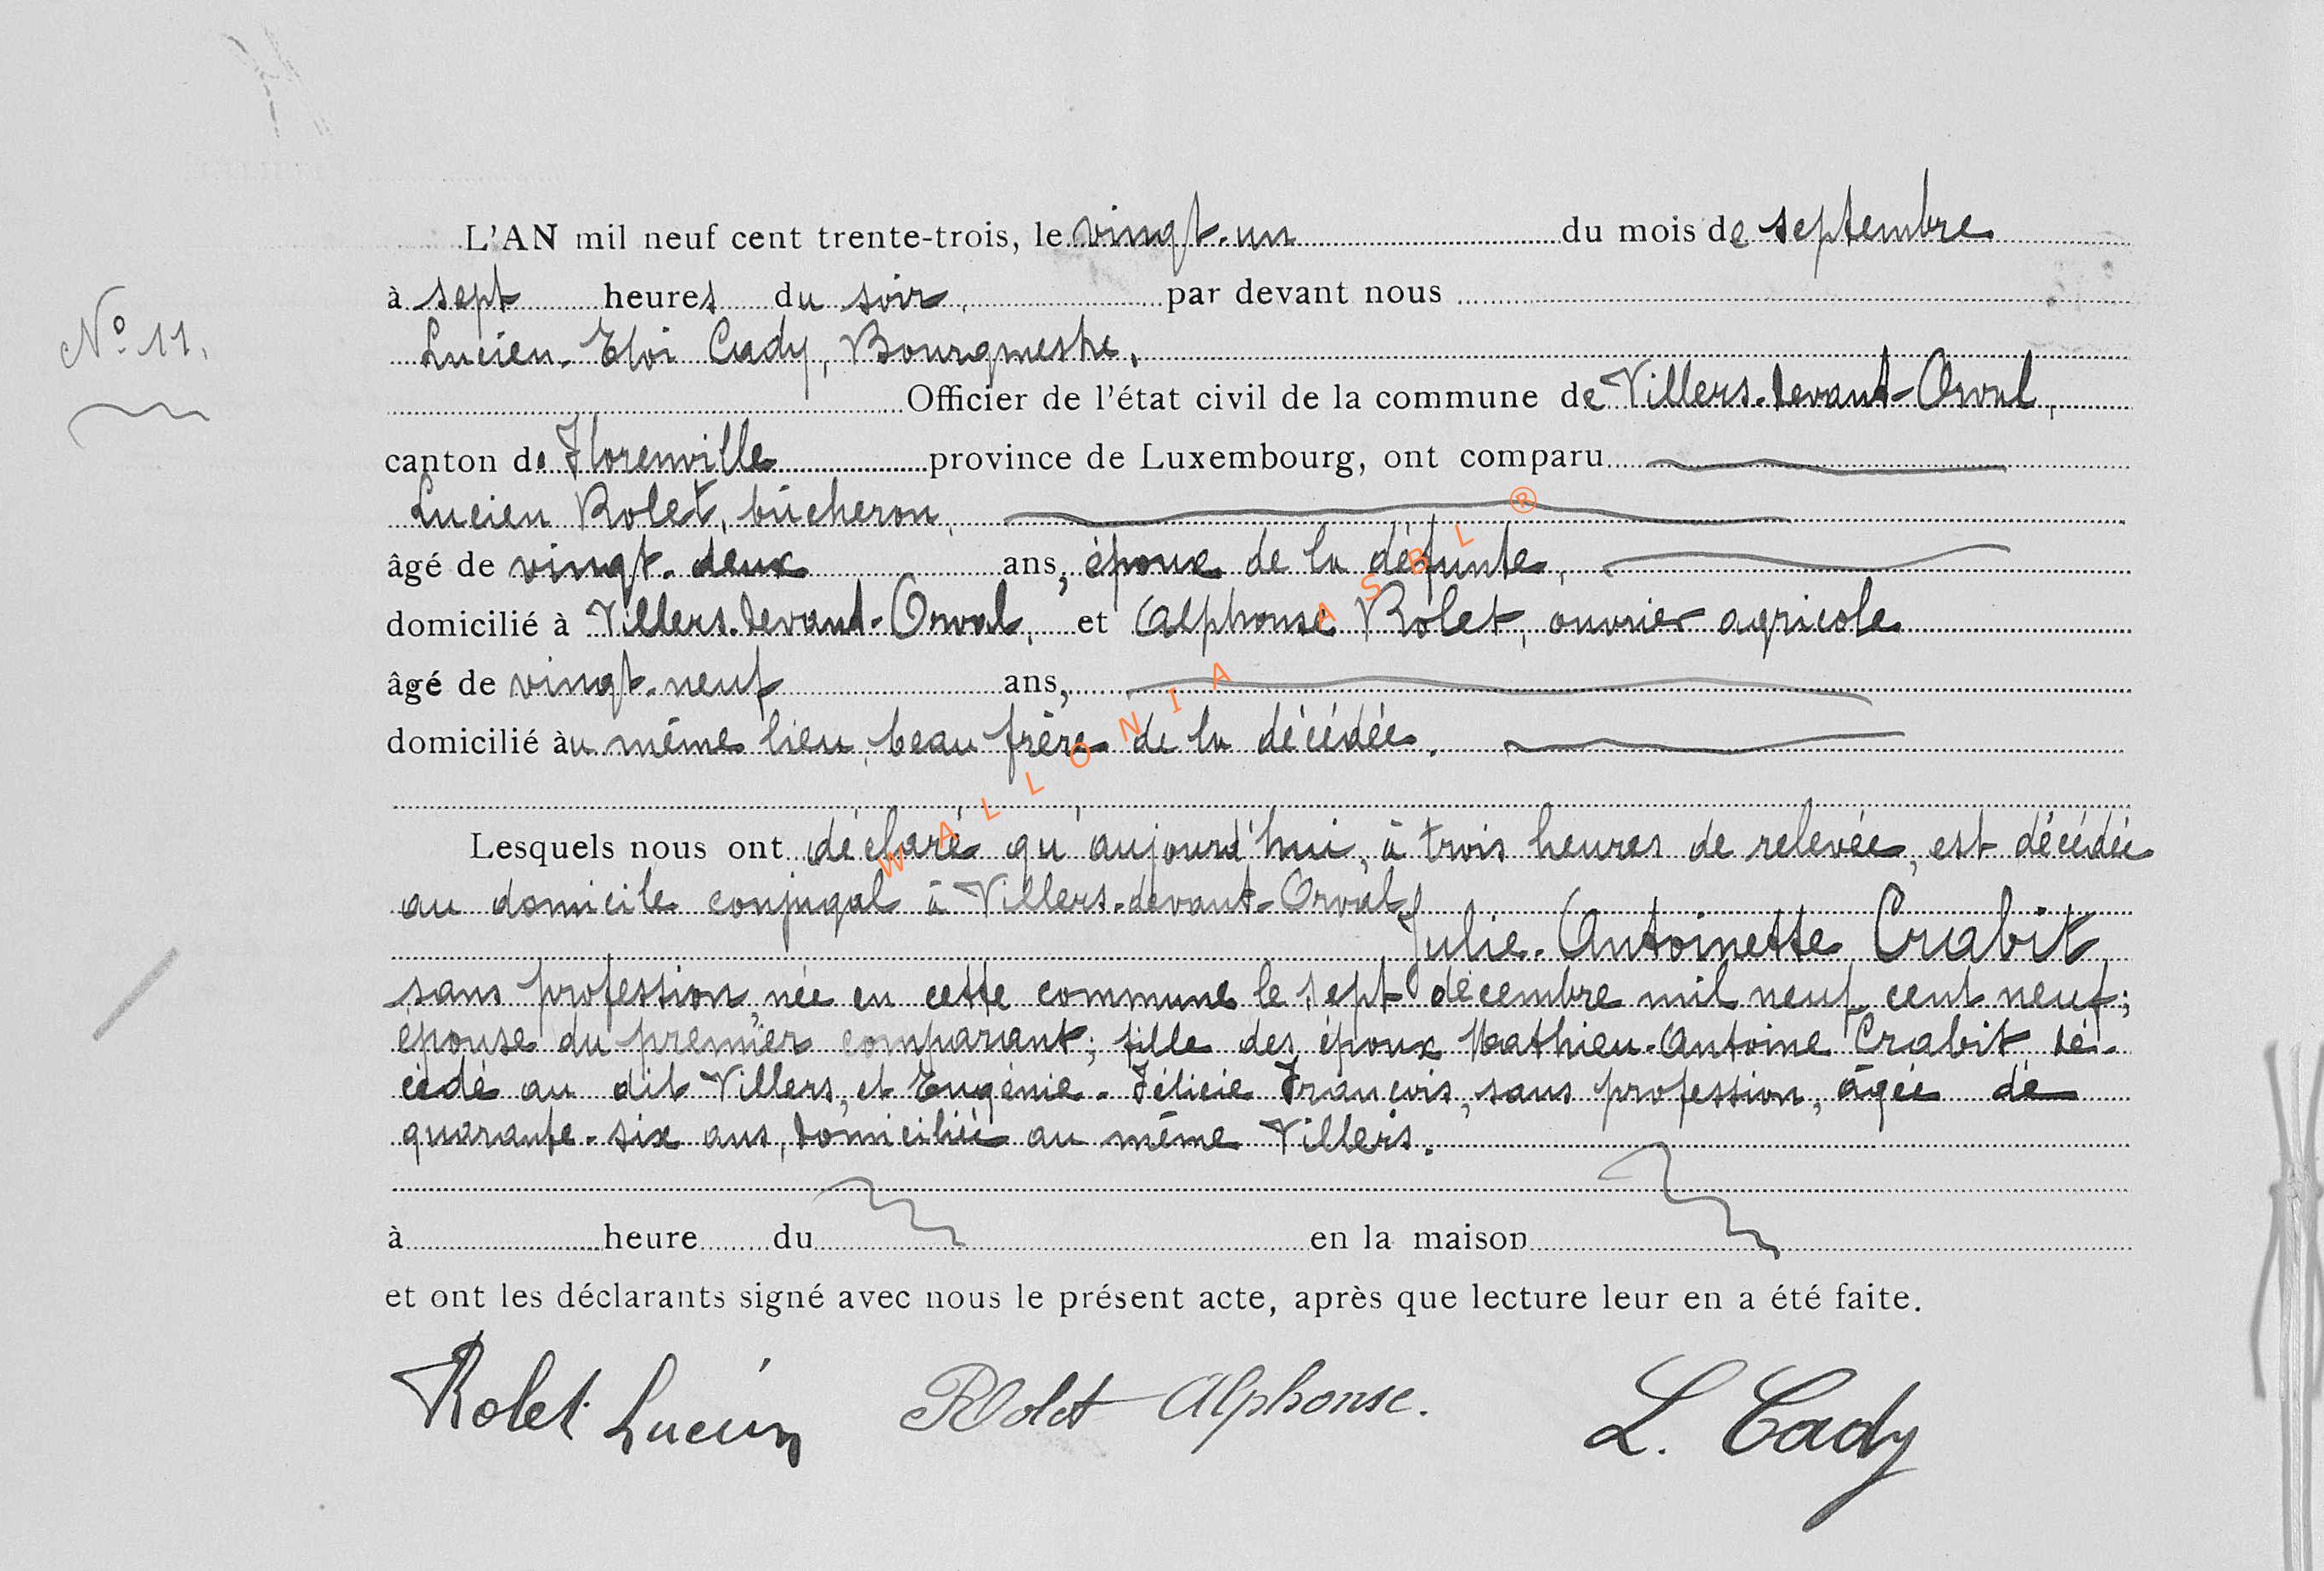 L'AN mil neuf cent trente-trois, le vingt-un du mois de septembre
à sept heures du soir, par devant nous
N° 11.
Lucien-Eloi Cady, Bourgmestre,
Officier de l'état civil de la commune de Villers-devant-Orval,
canton de Florenville province de Luxembourg, ont comparu
Lucien Rolet, bûcheron,
âgé de vingt-deux ans, époux de la défunte,
domicilié à Villers-devant-Orval, et Alphonse Rolet, ouvrier agricole
âgé de vingt-neuf ans,
domicilié àu même lieu, beau frère de la décédée.
Lesquels nous ont déclaré qu'aujourd'hui, à trois heures de relevée, est décédée
au domicile conjugal à Villers-devant-Orval
Julie-Antoinette Crabit,
sans profession, née en cette commune le sept décembre mil neuf cent neuf;
épouse du premier comparant; fille des époux Mathieu-Antoine Crabit, dé-
cédé au dit Villers, et Eugénie-Félicie François, sans profession, âgée de
quarante-six ans, domiciliée au même Villers.
à heure du en la maison
et ont les déclarants signé avec nous le présent acte, après que lecture leur en a été faite.
Rolet Lucien Rolet Alphonse. L. Cady
WALLONIA ASBL ®